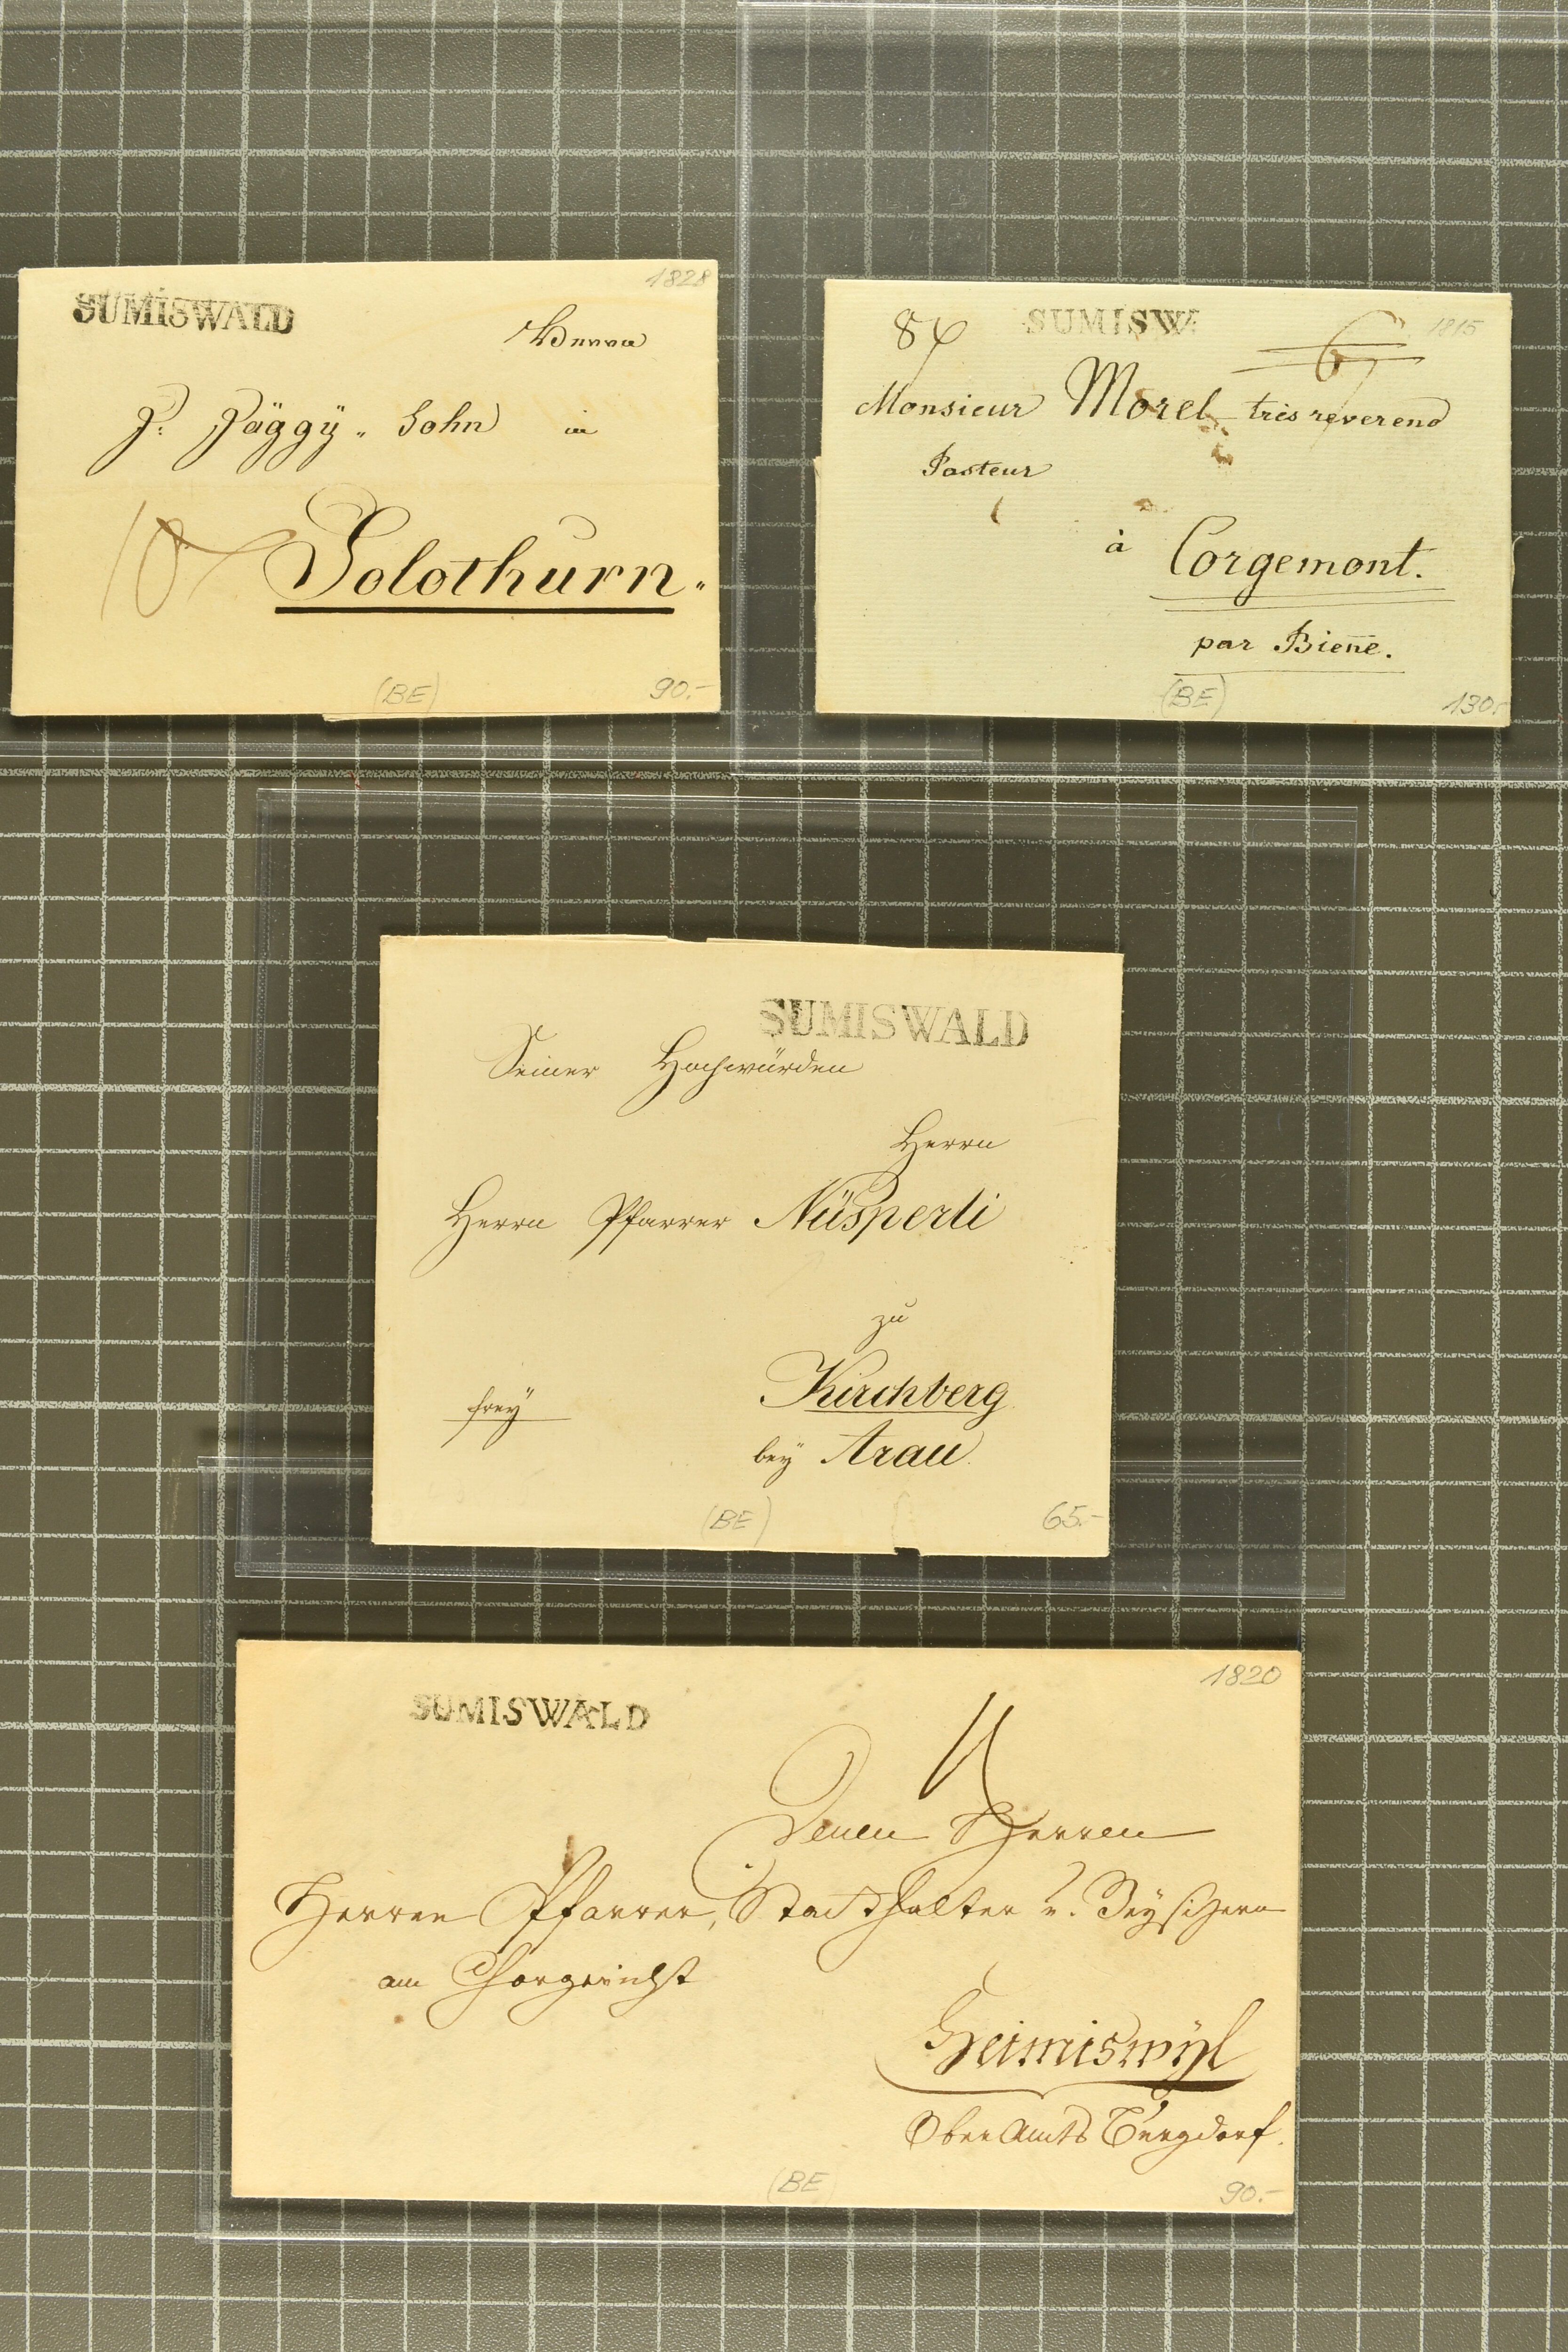 1828
SUMISWALD
Herrn
J. Jäggÿ Sohn in
Solothurn
(BE)
90.-
SUMISW
1815
84
6
Monsieur Morel très reverend
Pasteur
à Corgemont.
par Bieñe.
(BE)
130.-
SUMISWALD
Seiner Hochwürden
Herrn
Herrn Pfarrer Nüsperli
zu
Kirchberg
freÿ
beÿ Arau
(BE)
65.-
1820
SUMISWALD
Denen Herren
Herren Pfarrer, Statthalter u. Beÿsitzern
am Chorgericht
Heimiswÿl
OberAmts Burgdorf.
(BE)
90.-